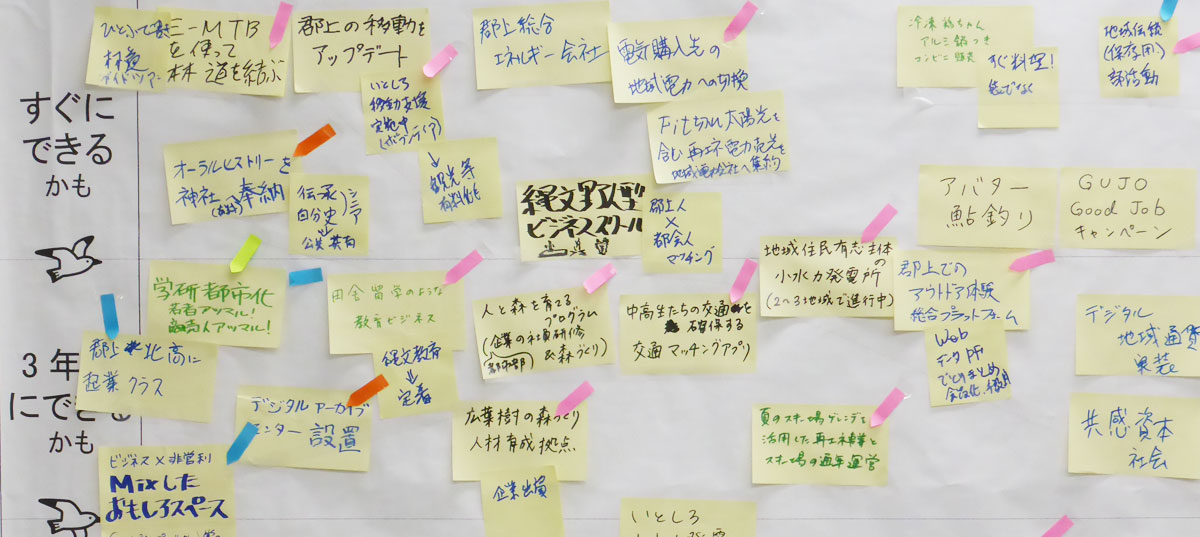 すぐに
できる
かも
E-MTB
を使って
林道を結ぶ
郡上の移動を
アップデート
いとしろ
移動支援
実施中
(ボランティア)
↓
観光等
有料化
郡上総合
エネルギー会社
電気購入先の
地域電力への切換
Fit切れ太陽光を
含む再エネ電力売先を
地域電力会社へ集約
アルミ鍋つき
コンビニ販売
すぐ料理!
地域伝統
(保存用)
部活動
オーラルヒストリーを
神社 奉納
伝承
自分史
シニア
↓
公共共有
縄文
ビジネススクール
郡上人
×
都会人
マッチング
アバター
鮎釣り
GUJO
Good Job
キャンペーン
3年
にできる
かも
学研都市化
若者アツマル!
人アツマル!
郡上北高に
起業クラス
田舎留学のような
教育ビジネス
縄文教育
↓
定着
人と森を育てる
プログラム
(企業の社員研修
&森づくり)
中高生たちの交通を
確保する
交通マッチングアプリ
地域住民有志主体
の
小水力発電所
(2~3地域で進行中)
郡上での
アウトドア体験
総合プラットフォーム
Web
データPF
でとりまとめ
デジタル
地域通貨
実装
デジタルアーカイブ
センター設置
広葉樹の森づくり
人材育成拠点
企業出資
夏のスキー場ゲレンデを
活用した再エネ事業と
スキー場の通年運営
共感資本
社会
ビジネス×非営利
Mixした
おもしろスペース
いとしろ